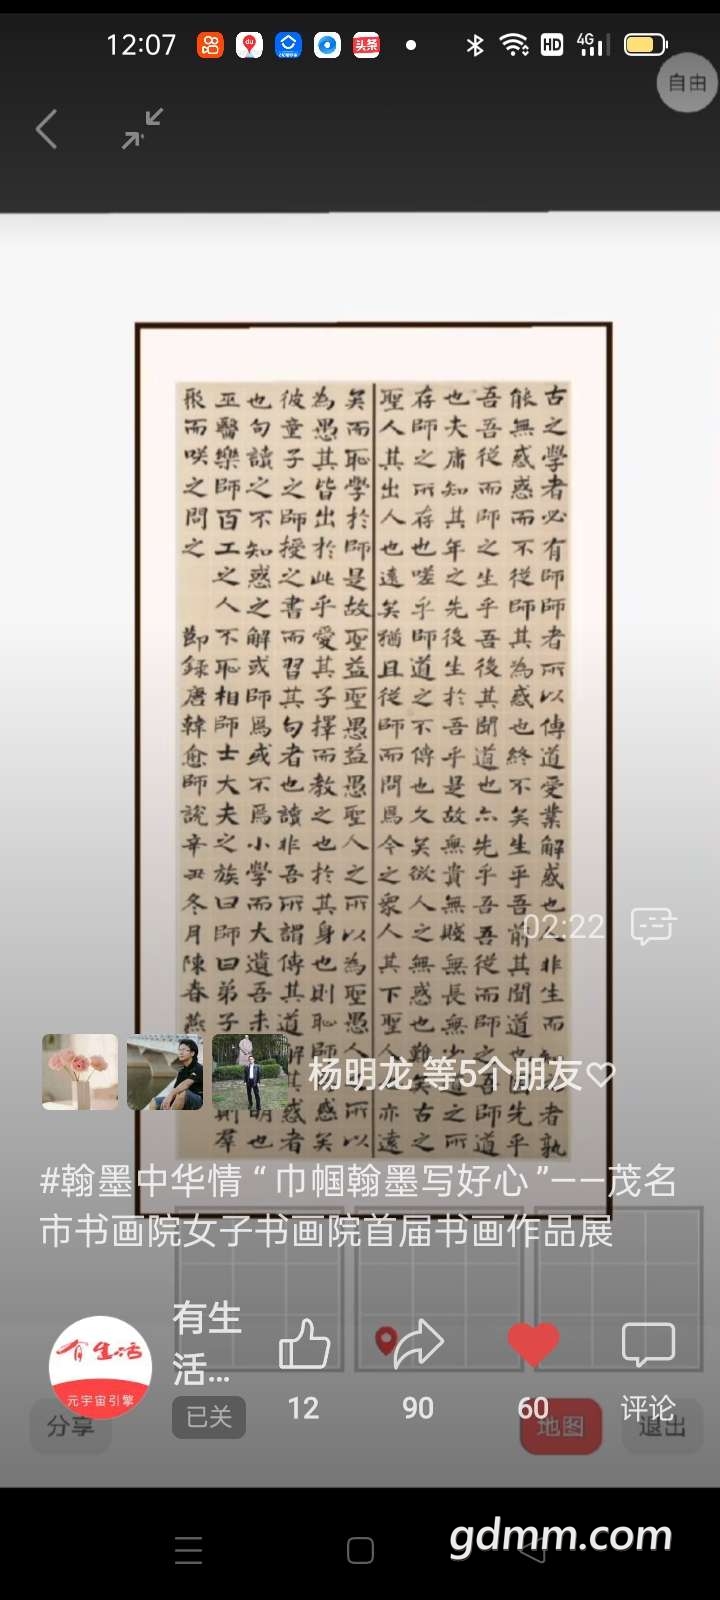 12:07
du
头条
HD
4G
自由
古之學者必有師師者所以傳道受業解惑也非生而者孰
能無惑惑而不從師其為惑也終不矣生乎吾前其聞道也固先乎
吾吾從而師之生乎吾後其聞道也亦先乎吾吾從而師之吾師道
也夫庸知其年之先後生於吾乎是故無貴無賤無長無少道之所
存師之所存也嗟乎師道之不傳也久矣欲人之無惑也難矣古之
聖人其出人也遠矣猶且從師而問焉今之衆人其下聖人亦遠
矣而恥學於師是故聖益聖愚益愚聖人之所以為聖愚人之所以
為愚其皆出於此乎愛其子擇而教之也於其身也則恥師惑矣
彼童子之師授之書而習其句者也讀非吾所謂傳其道解其惑者
也句讀之不知惑之解或師焉或不焉小學而大遺吾未明也
巫醫樂師百工之人不恥相師士大夫之族曰師曰弟子則羣
聚而咲之問之
節録唐韓愈師說辛丑冬月陳春燕
02:22
杨明龙 等5个朋友♡
#翰墨中华情“巾帼翰墨写好心”——茂名
市书画院女子书画院首届书画作品展
有生活
元宇宙引擎
有生
活...
已关
12
90
60
评论
分享
地图
退出
gdmm.com